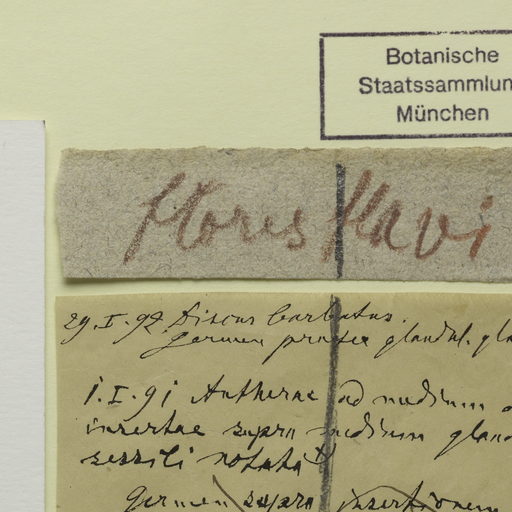 Botanische
Staatssammlun
München
flores flavi
29.I.92 Discus barbatus.
Germen praeter glandul. gla
i.I.91 Antherae ad medium
insertae supra medium gland
sessili notata
Germen supra insertionem